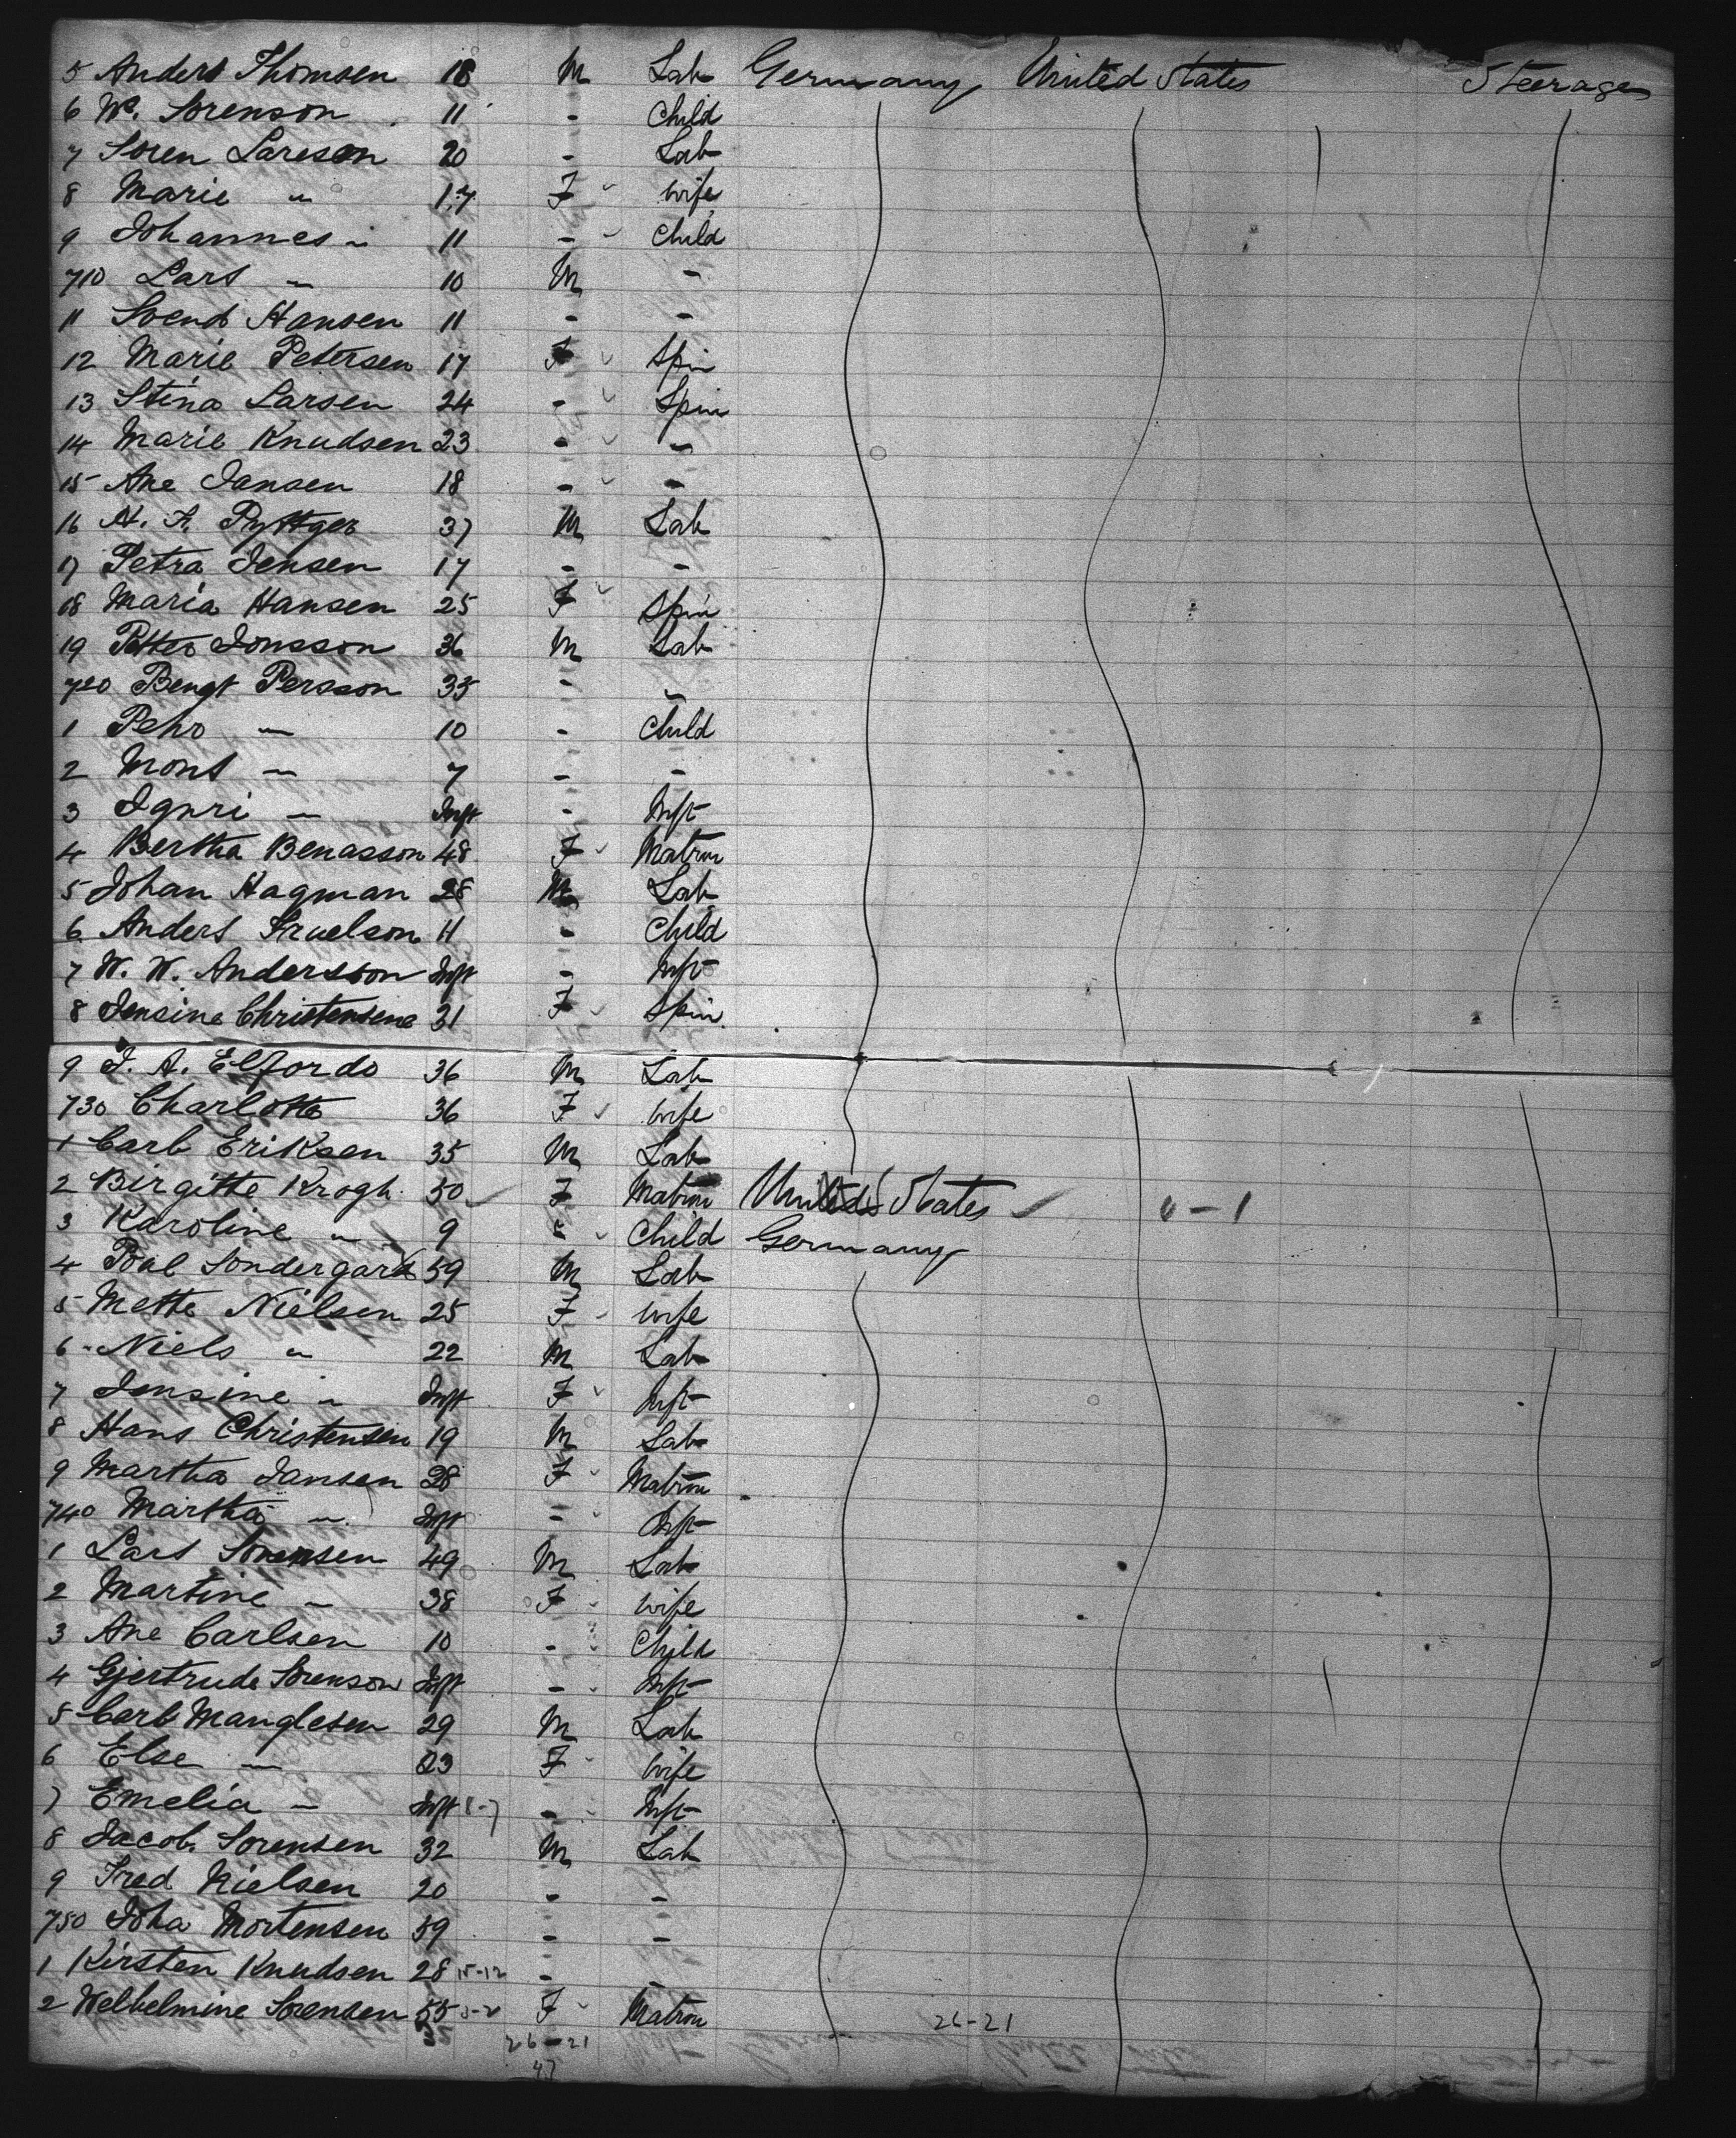 5 Anders Thomsen 18 M Lab Germany United States Steerage
6 W. Sorenson 11 - Child
7 Soren Larsson 20 - Lab
8 Marie " 17 F wife
9 Johannes " 11 - Child
710 Lars " 10 M -
11 Svend Hansen 11 - -
12 Marie Petersen 17 F Spin
13 Stina Larsen 24 - Spin
14 Marie Knudsen 23 - -
15 Ane Jansen 18 - -
16 H. A. 37 M Lab
17 Petra Jensen 17 - -
18 Maria Hansen 25 F Spin
19 Petter Jonsson 36 M Lab
720 Bengt Persson 35 - -
1 Pehr " 10 - Child
2 Mons " 7 - -
3 " Inft - Inft
4 Bertha Benasson 48 F Matron
5 Johan Hagman 28 M Lab
6 Anders Truelson 11 - Child
7 W. W. Andersson Inft - Inft
8 Jensine Christensene 31 F Spin
9 J. A. Elfordo 36 M Lab
730 Charlotte 36 F wife
1 Carl Eriksen 35 M Lab
2 Birgitte Krogh 50 F Matron United States 0-1
3 Karoline " 9 " Child Germany
4 Poul Sondergard 59 M Lab
5 Mette Nielsen 25 F wife
6 Niels " 22 M Lab
7 Jensine " Inft F Inft
8 Hans Christensen 19 M Lab
9 Martha Jansen 28 F Matron
740 Martha " Inft - Inft
1 Lars Sorensen 49 M Lab
2 Martine " 38 F wife
3 Ane Carlsen 10 - Child
4 Gjertrude Sorenson Inft - Inft
5 Carl Manglesen 29 M Lab
6 Else " 23 F wife
7 Emelia " Inft 8-7 - Inft
8 Jacob Sorensen 32 M Lab
9 Fred Nielsen 20 - -
750 Joha Mortensen 59 - -
1 Kirsten Knudsen 28 15-12 - -
2 Welhelmine Sorensen 55 F Matron 26-21
26-21
47